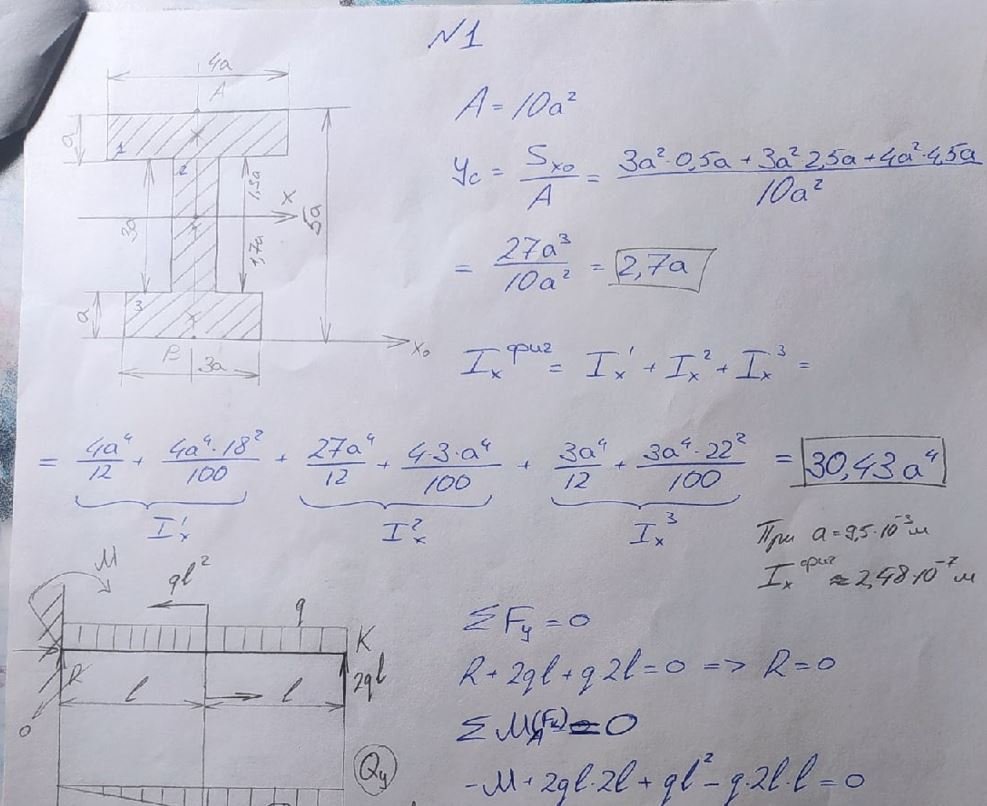 N1
4a
A
a
1
2
3a
1,3a
1,7a
5a
x
a
3
B
3a
x₀
A = 10a²
y_c = S_x₀ / A = (3a²·0,5a + 3a²·2,5a + 4a²·4,5a) / 10a²
= 27a³ / 10a² = 2,7a
I_x^фиг = I_x^1 + I_x^2 + I_x^3 =
= 4a⁴/12 + 4a⁴·18²/100 + 27a⁴/12 + 4·3·a⁴/100 + 3a⁴/12 + 3a⁴·22²/100 = 30,43a⁴
I_x^1 I_x^2 I_x^3
При a = 9,5·10⁻³ м
I_x^фиг ≈ 2,48·10⁻⁷ м
M
ql²
q
K
R
2ql
l
l
0
Q_y
ΣF_y = 0
R + 2ql + q2l = 0 => R = 0
ΣM_A(F_k) = 0
-M + 2ql·2l + ql² - q·2l·l = 0